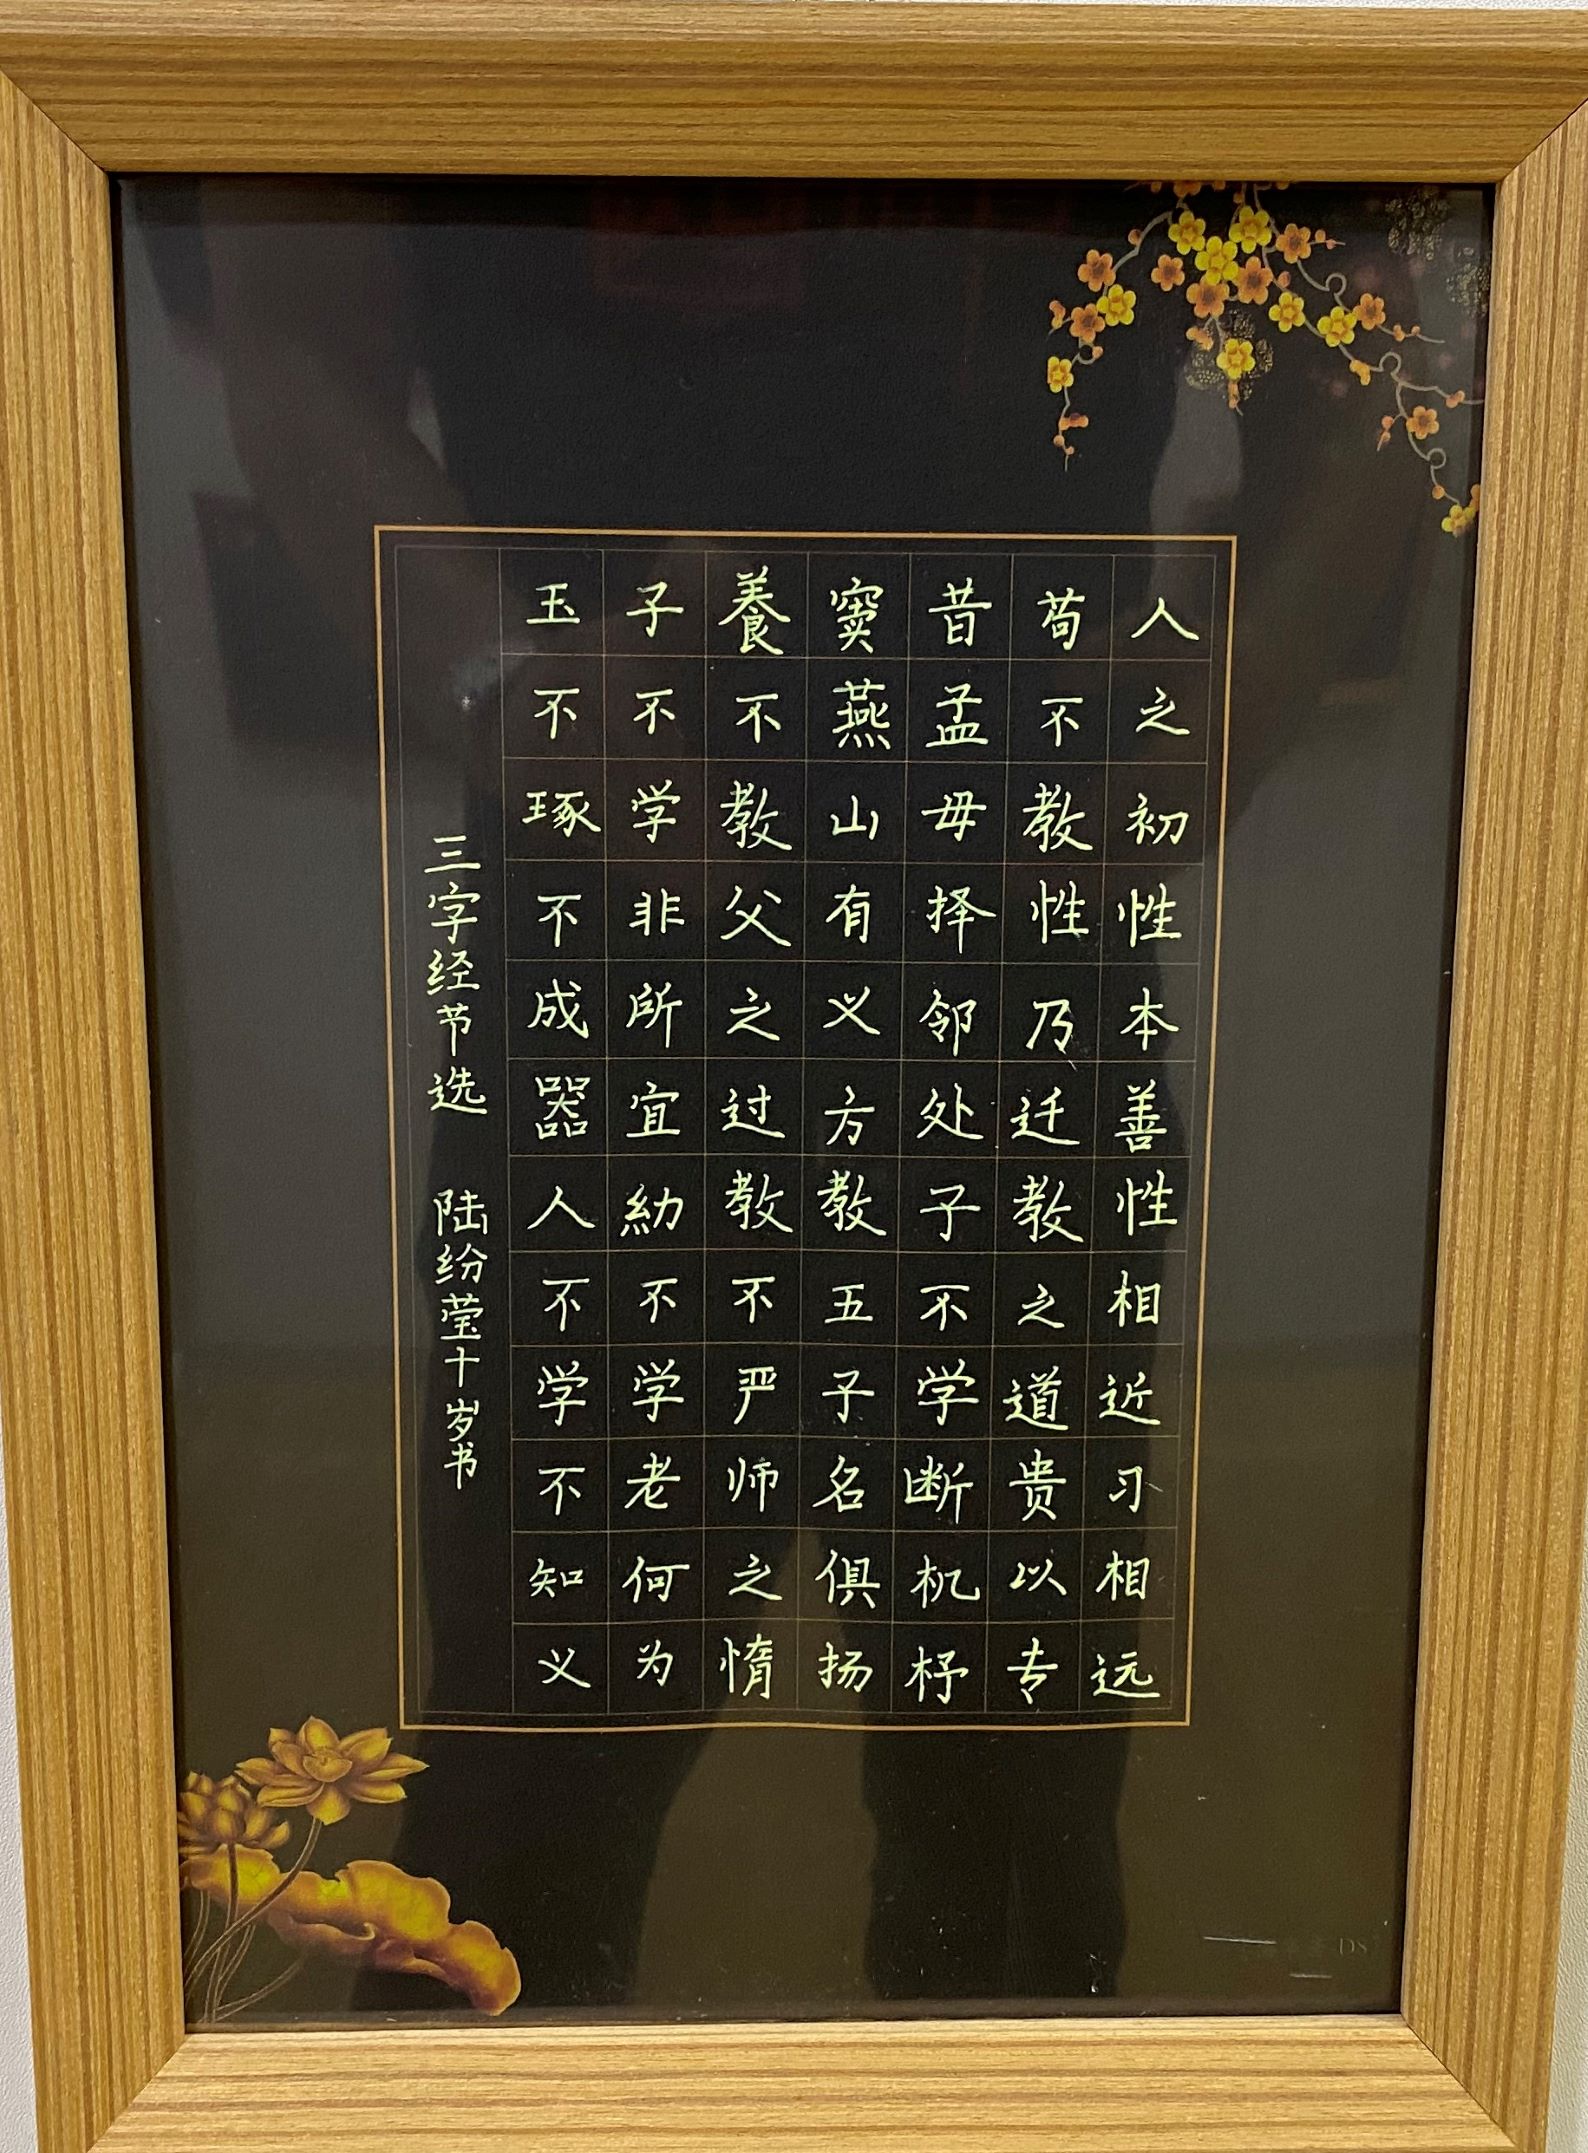 人之初性本善性相近习相远
苟不教性乃迁教之道贵以专
昔孟毋择邻处子不学断机杼
窦燕山有义方教五子名俱扬
養不教父之过教不严师之惰
子不学非所宜幼不学老何为
玉不琢不成器人不学不知义
三字经节选 陆纷莹十岁书
DS